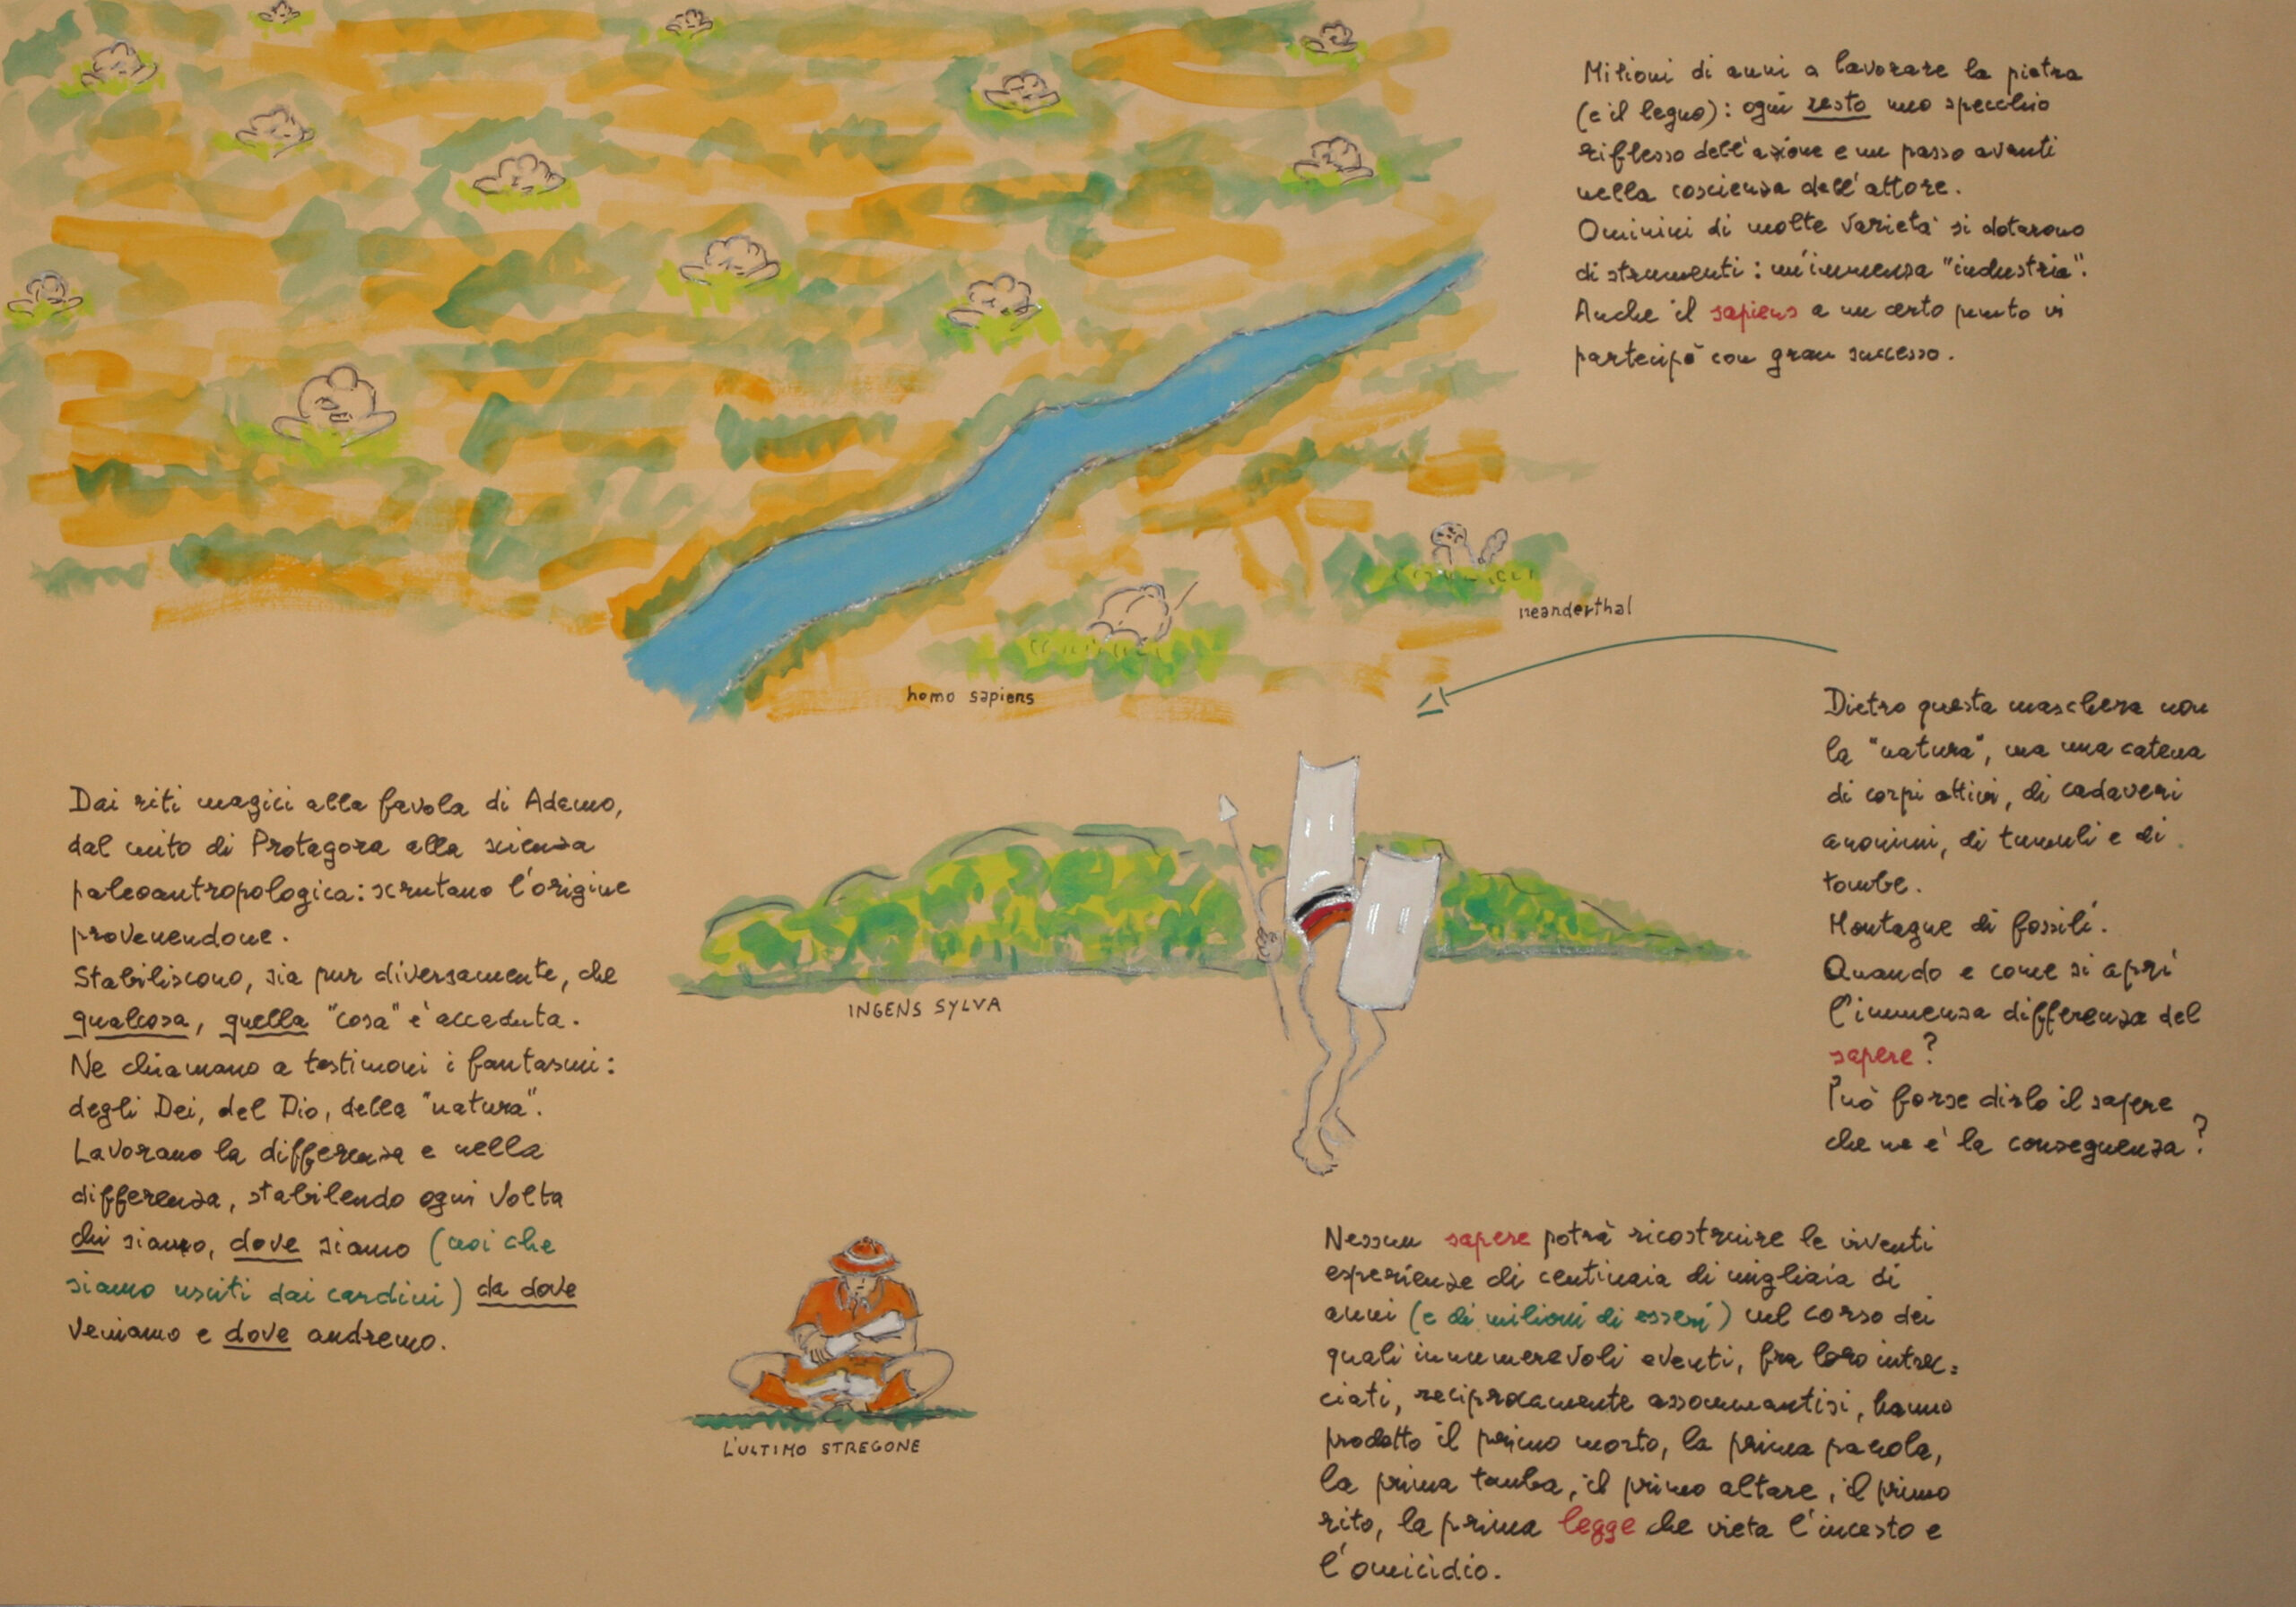 Milioni di anni a lavorare la pietra
(e il legno): ogni resto uno specchio
riflesso dell'azione e un passo avanti
nella coscienza dell'attore.
Ominini di molte varietà si dotarono
di strumenti: un'immensa "industria".
Anche il sapiens a un certo punto vi
partecipò con gran successo.
neanderthal
homo sapiens
Dietro questa maschera non
la "natura", ma una catena
di corpi attivi, di cadaveri
anonimi, di tumuli e di
tombe.
Montagne di fossili.
Quando e come si aprì
l'immensa differenza del
sapere?
Può forse dirlo il sapere
che ne è la conseguenza?
Dai riti magici alla favola di Adamo,
dal mito di Protagora alla scienza
paleoantropologica: scrutano l'origine
provenendone.
Stabiliscono, sia pur diversamente, che
qualcosa, quella "cosa" è accaduta.
Ne chiamano a testimoni i fantasmi:
degli Dei, del Dio, della "natura".
Lavorano la differenza e nella
differenza, stabilendo ogni volta
chi siamo, dove siamo (noi che
siamo usciti dai cardini) da dove
veniamo e dove andremo.
INGENS SYLVA
L'ULTIMO STREGONE
Nessun sapere potrà ricostruire le viventi
esperienze di centinaia di migliaia di
anni (e di milioni di esseri) nel corso dei
quali innumerevoli eventi, fra loro intrec=
ciati, reciprocamente assommantisi, hanno
prodotto il primo morto, la prima parola,
la prima tomba, il primo altare, il primo
rito, la prima legge che vieta l'incesto e
l'omicidio.